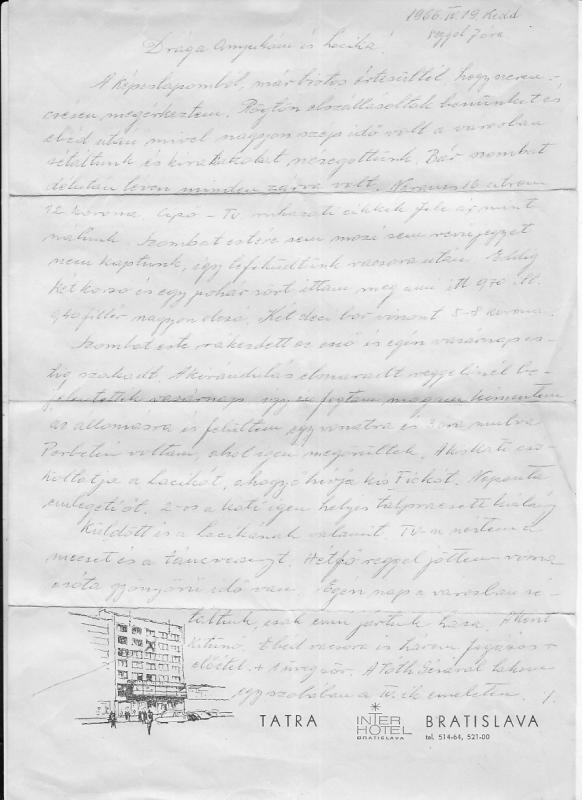 1966. IV. 19. Kedd
reggel 7 óra
Drága Anyukám és Lacika!
A képeslapomból, már biztos értesültél, hogy szeren-
csésen megérkeztem. Rögtön elszállásoltak bennünket és
ebéd után mivel nagyon szép idő volt a városban
sétáltunk és kirakatokat nézegettünk. Bár szombat
délután lévén minden zárva volt.
12 korona. Cipő - Tv. ruházati cikkek fele ár mint
nálunk. Szombat estére sem mozi sem jegyet
nem kaptunk, így lefeküdtünk vacsora után. Eddig
két korsó és egy pohár sört ittam meg ami itt
940 fillér nagyon olcsó. Két deci bor viszont 5-8 korona.
Szombat este rákezdett az eső és egész vasárnap es-
tig szakadt. A kirándulás elmaradt reggelinél be-
jelentették vasárnap, így én fogtam magam kimentem
az állomásra és felültem egy vonatra és óra mulva
voltam, ahol igen megörültek. A cso-
koltatja a Lacikát, ahogy hívja kis Fickót. Naponta
emlegeti őt. a Kati igen helyes
Küldött is a Lacikának valamit. TV-n néztem a
meccset és a táncversenyt. Hétfő reggel jöttem vissza
azóta gyönyörű idő van. Egész nap a városban sé-
táltunk, csak enni jártunk haza. A
kitünő. Ebéd vacsora is három fogásos +
előétel + 1 üveg sör. A Tóth Gézával lakom
egy szobában a IV.-ik emeleten. 1.
TATRA INTER HOTEL BRATISLAVA BRATISLAVA
tel. 514-64, 521-00